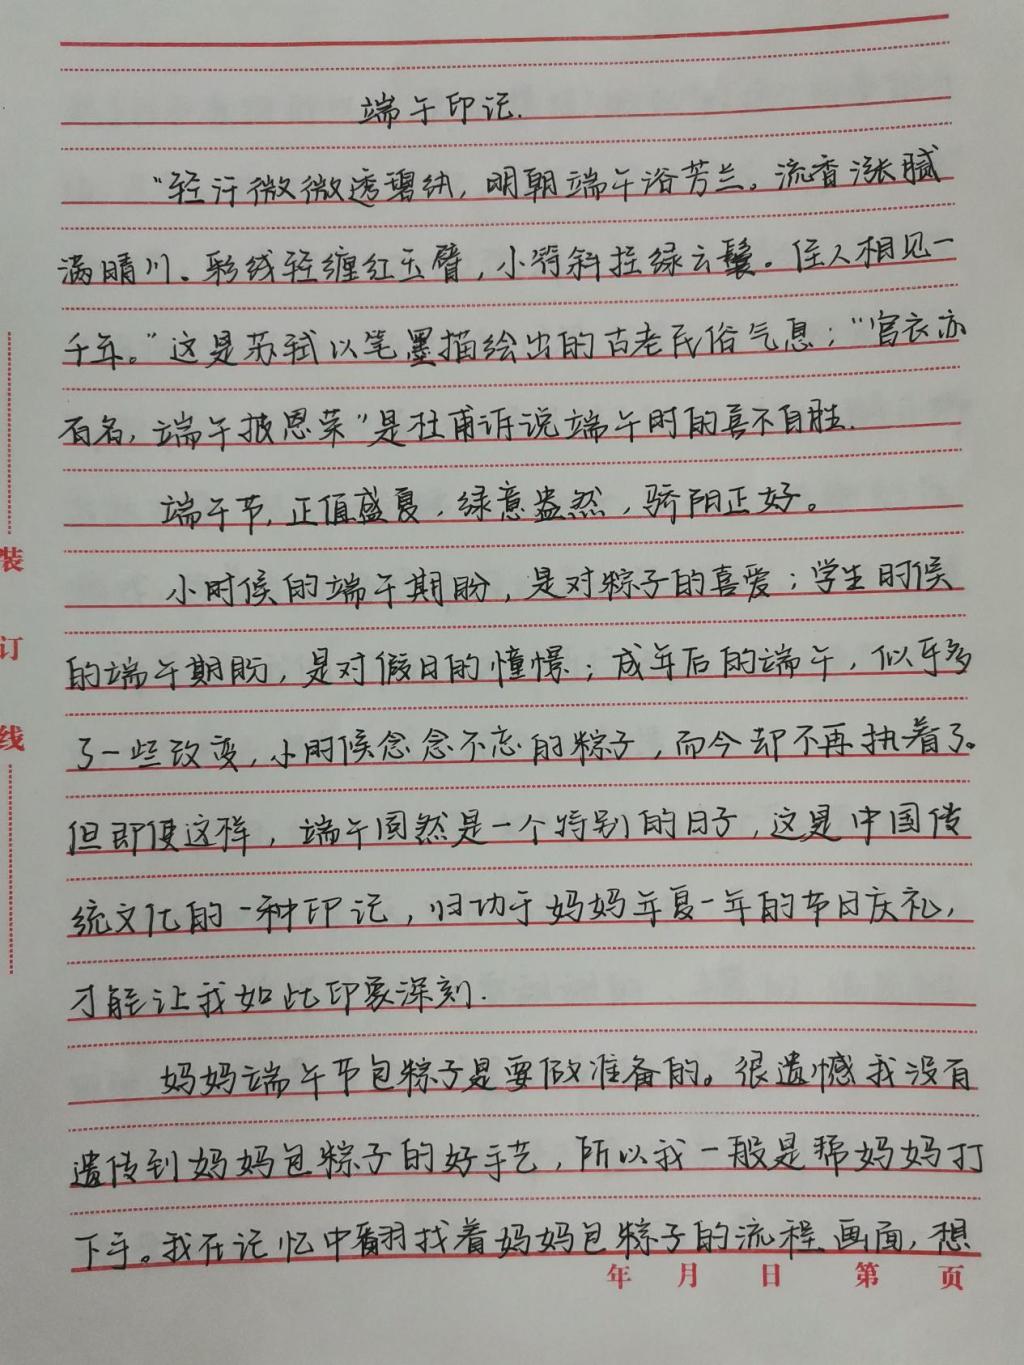 端午印记.
“轻汗微微透碧纨，明朝端午浴芳兰。流香涨腻
满晴川。彩线轻缠红玉臂，小符斜挂绿云鬟。佳人相见一
千年。”这是苏轼以笔墨描绘出的古老民俗气息；“宫衣亦
有名，端午被恩荣”是杜甫诉说端午时的喜不自胜.
端午节，正值盛夏，绿意盎然，骄阳正好。
小时候的端午期盼，是对粽子的喜爱；学生时候
的端午期盼，是对假日的憧憬；成年后的端午，似乎多
了一些改变，小时候念念不忘的粽子，而今却不再执着了。
但即便这样，端午固然是一个特别的日子，这是中国传
统文化的一种印记，归功于妈妈年复一年的节日庆礼，
才能让我如此印象深刻.
妈妈端午节包粽子是要做准备的。很遗憾我没有
遗传到妈妈包粽子的好手艺，所以我一般是帮妈妈打
下手。我在记忆中翻找着妈妈包粽子的流程画面，想
装
订
线
年 月 日 第 页